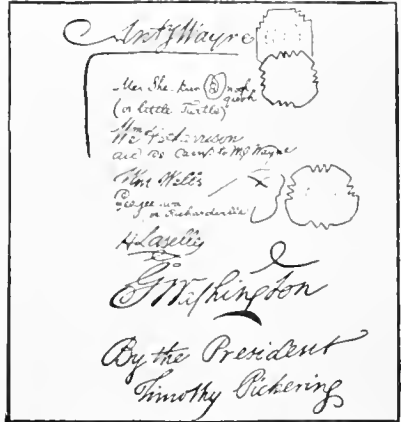 Anty Wayne
Me. She. Kun nogh
quogh
(or little Turtle)
Wm H. Harrison
aid de Camp to MG Wayne
Wm Wells
or Richardville
H Laselle
G Washington
By the President
Timothy Pickering